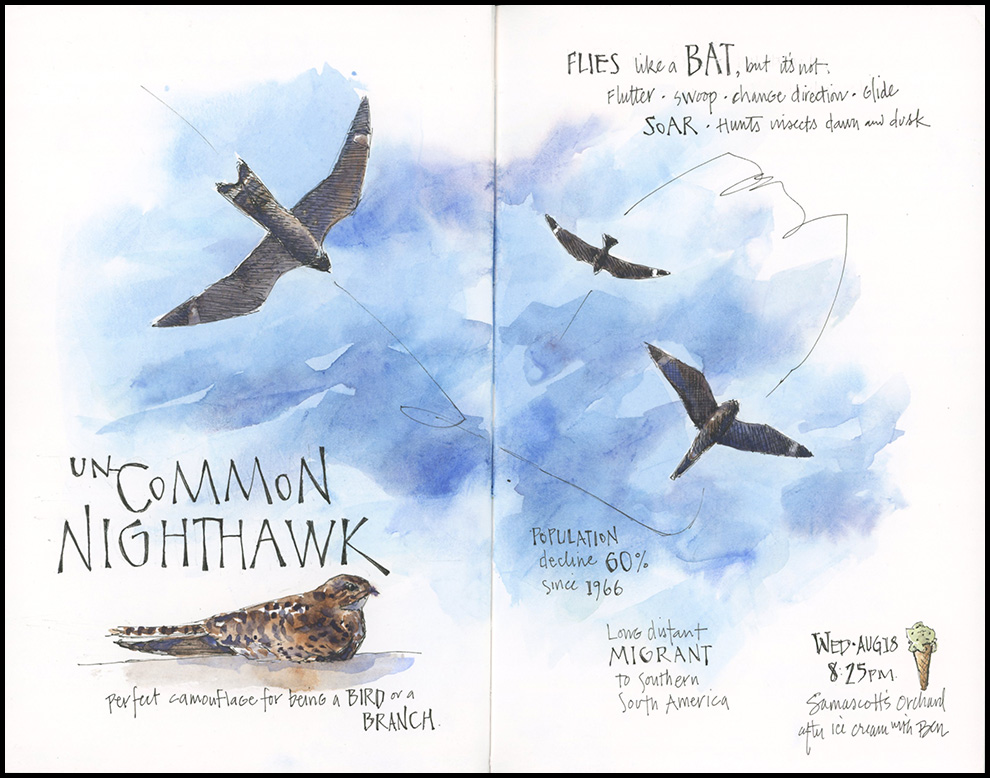 UN-COMMON
NIGHTHAWK
perfect camouflage for being a BIRD or a
BRANCH.
FLIES like a BAT, but it's not.
Flutter · swoop · change direction · Glide
SOAR · Hunts insects dawn and dusk
POPULATION
decline 60%
since 1966
Long distant
MIGRANT
to Southern
South America
WED · AUG 18
8:25PM.
Samascott's Orchard
after ice cream with Ben